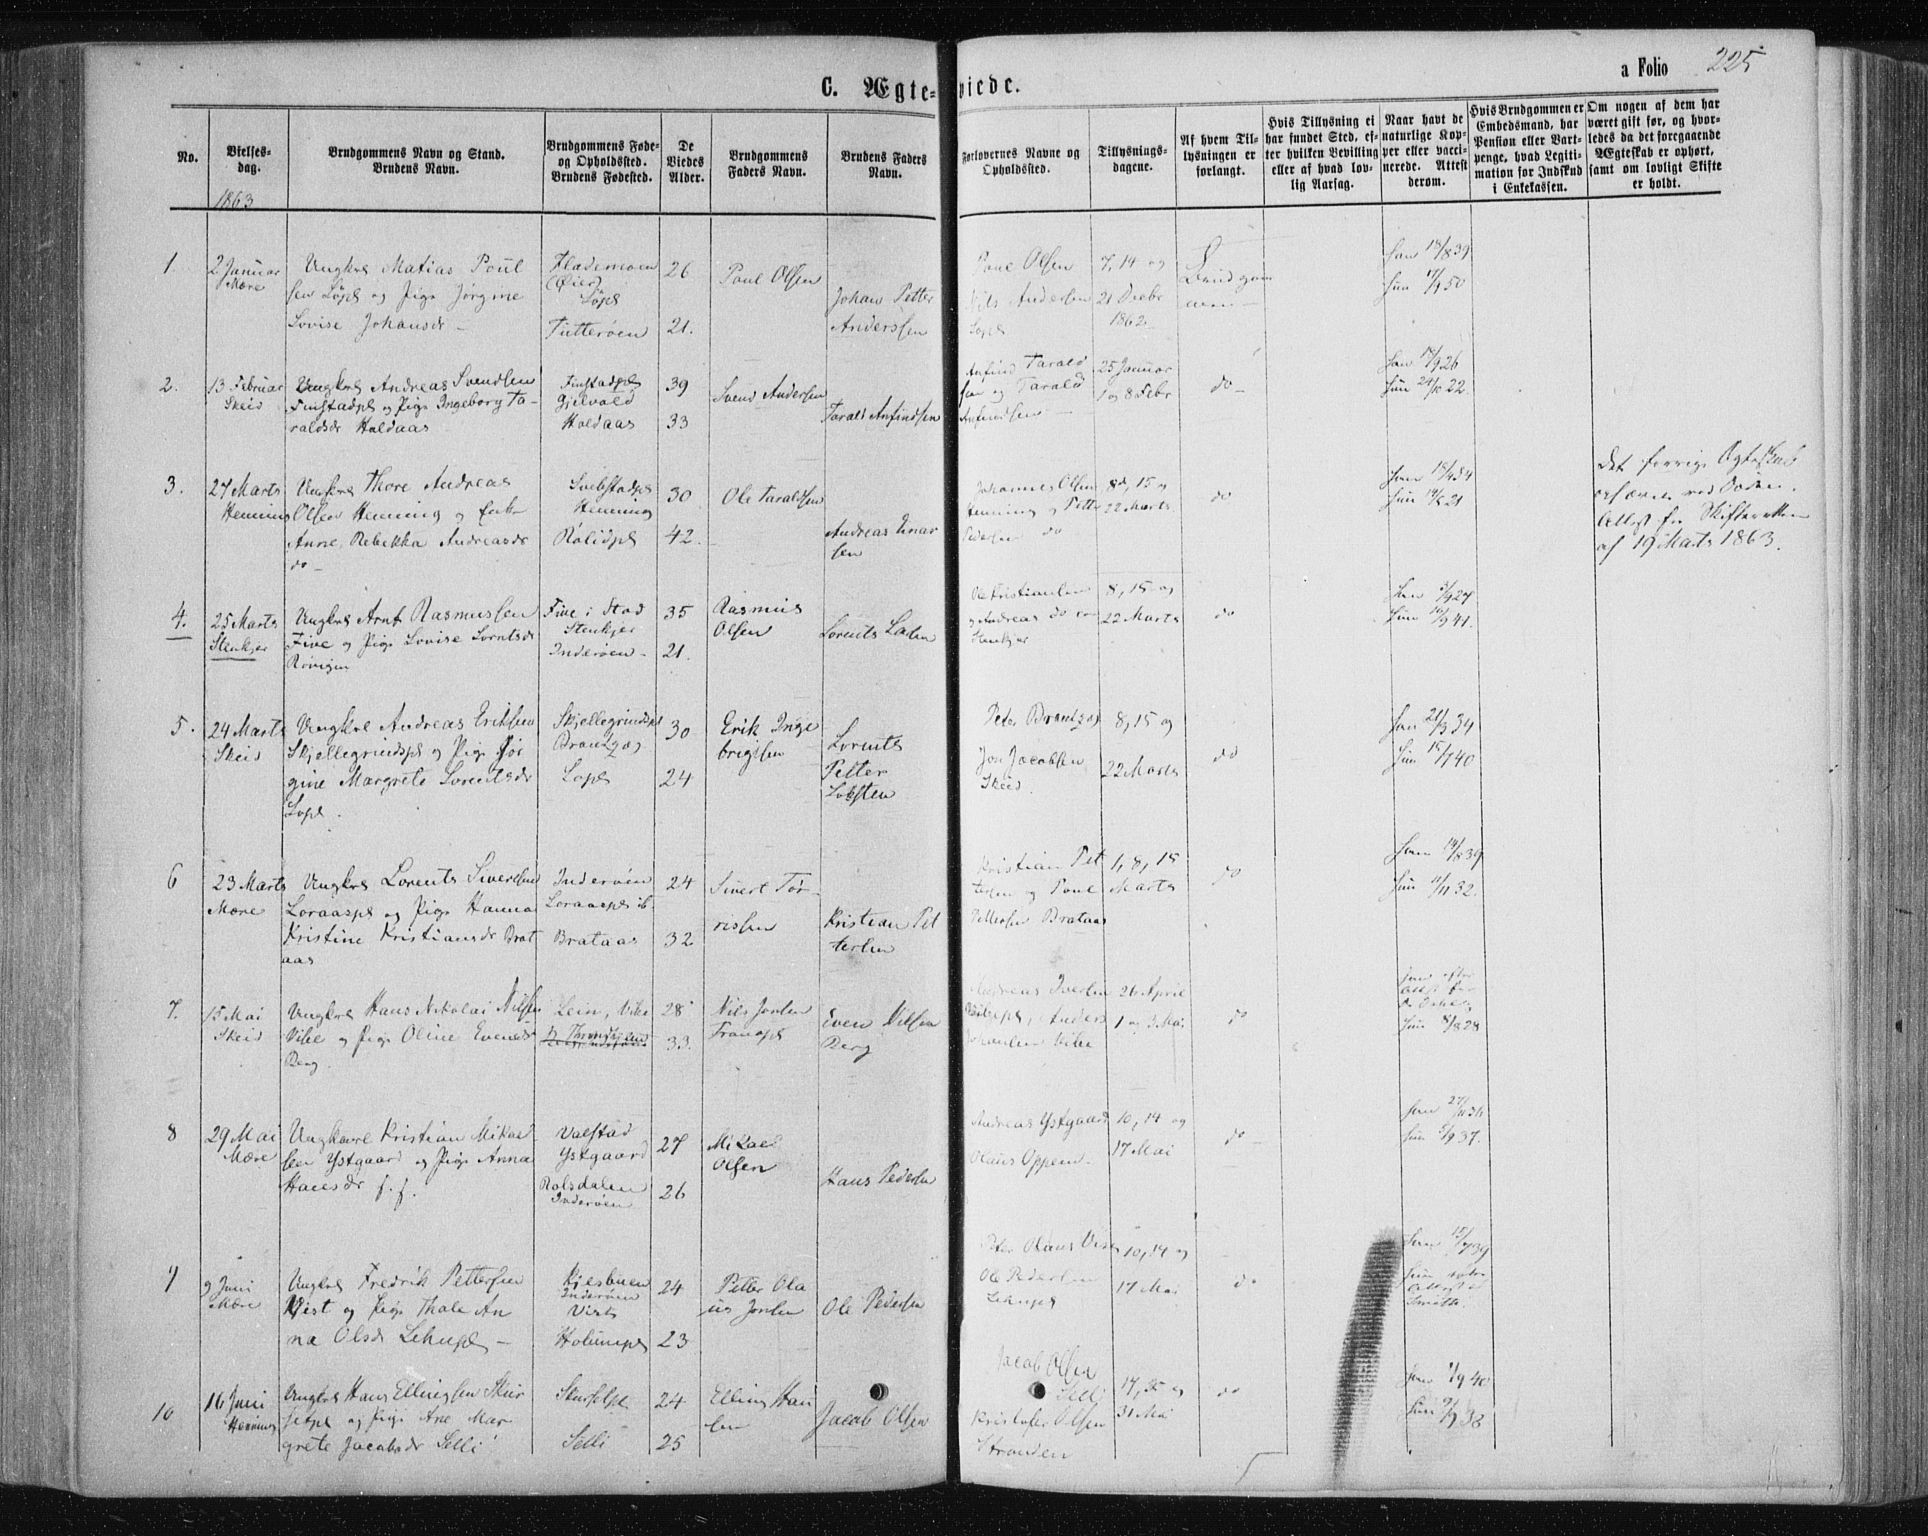 C. Ægte-viede.
a Folio 225
No.
Vielses-dag.
1863
Brudgommens Navn og Stand.
Brudens Navn.
Brudgommens Føde- og Opholdssted.
Brudens Fødested.
De Viedes Alder.
Brudgommens Faders Navn.
Brudens Faders Navn.
Forlovernes Navne og Opholdssted.
Tillysnings-dagene.
Af hvem Til-lysningen er forlangt.
Hvis Tillysning ei har fundet Sted, ef-ter hvilken Bevilling eller af hvad lov-lig Aarsag.
Naar havt de naturlige Kop-per eller vacci-nerede. Attest derom.
Hvis Brudgommen er Embedsmand, har Pension eller Vart-penge, hvad Legiti-mation for Indskud i Enkekassen.
Om nogen af dem har været gift før, og hvor-ledes da det foregaaende Ægteskab er ophørt, samt om lovligt Skifte er holdt.
1.
2 Januar
Mære
Ungkrl Matias Poul
sen Løpl og Pige Jørgine
Lovise Johansdr –
Flademoen
(Øier)
Løpl
Tutterøen
26
21.
Poul Olsen
Johan Petter
Anderssen
Poul Olsen
Nils Andersen
7, 14 og
21 Decbr
1862
Brudgom
men –
Han 18/8 39
Hun 17/7 50
2.
13 Februar
Skeid
Ungkrl Andreas Svendsen
Finstadpl og Pige Ingeborg Ta-
raldsdr Holdaas
Finstadpl
Gjelvold
Holdaas
39
33
Svend Andersen
Tarald Anfindsen
Anfind Tarald
sen og Tarald
Anfindsen –
25 Januar
1 og 8 Febr
do –
Han 14/9 26
Hun 24/10 22.
3.
27 Marts
Henning
Ungkrl Thore Andreas
Olsen Henning og Enke
Anne Rebekka Andreasdr
do –
Svebstadpl
Henning
Rolidpl
30
42.
Ole Taraldsen
Andreas Enar
sen
Johannes Olsen
Henning og Petter
Pedersen do
8de, 15 og
22 Marts
do
Han 18/4 34
Hun 14/8 21
Det forrige Ægteskab
ophævet ved Døden.
Attest fra Skifteretten
af 19 Marts 1863.
4.
25 Marts
Stenkjer
Ungkrl Arnt Rasmussen
Five og Pige Lovise Lorntsdr
Five i Stod
Stenkjer
Inderøen –
35
21.
Rasmus
Olsen
Lorents
Ole Kristiansen
og Andreas do
Stenkjer
8, 15 og
22 Marts
do
Han 3/9 27
Hun 16/9 41.
5.
24 Marts
Skeid
Ungkrl Andreas Eriksen
Skjellegrindspl og Pige Jør
gine Margrete Lorentsdr
Løpl.
Skjellegrindspl
Brandzæg
Løpl
30
24
Erik Inge
brigtsen
Lorents
Petter
Peter Brandzæg
Jon Jacobsen
Skeid
8, 15 og
22 Marts
do
Han 21/3 34
Hun 15/7 40
6
23 Marts
Mære
Ungkrl Lorents Sivertsen
Loraaspl og Pige Hanna
Kristine Kristiansdr Brat
aas
Inderøen
Loraaspl ib.
Brataas
24
32
Sivert Tør-
rissen
Kristian Pet
tersen
Kristian Pet
tersen og Poul
Pettersen Brataas
1, 8, 15
Marts
do
Han 14/8 39
Hun 11/11 32.
7.
15 Mai
Skeid
Ungkrl Hans Nikolai Nilssen
Vibe og Pige Oline Evensdr
Berg.
Lein, Vibe
28
33.
Nils Jonsen
Tranapl
Even Nilsen
Berg
Andreas Iversen
Vibepl, Anders
Johansen Vibe
26 April
1 og 3 Mai
do
Hun 8/8 28
8
29 Mai
Mære
Ungkarl Kristian Mikael
sen Ystgaard og Pige Anna
Hansdr f. f.
Valstad
Ystgaard
Rolsdalen
Inderøen
27
26
Mikael
Olsen
Hans Pedersen
Andreas Ystgaard
Olaus Oppem –
10, 14 og
17 Mai
do –
Han 27/11 36
Hun 5/9 37.
9
9 Juni
Mære
Ungkrl Fredrik Pettersen
Vist og Pige Thale An
na Olsdr Lehnpl –
Kjesbuen
Inderøen
Vist
Holumpl
24
23
Petter Ola
us Jonsen
Ole Pedersen
Peter Olaus
Ole Pedersen
Lehnpl
10, 14 og
17 Mai
do
Han 15/7 39
Hun
Attest
10
16 Juni
Henning
Ungkrl Hans Ellingsen Skur
selpl og Pige Ane Mar
grete Jacobsdr Selli
Skurselpl
Selli
24
25
Elling Han
sen
Jacob Olsen
Jacob Olsen
Selli
Kristofer Olsen
Stranden
17, 25 og
31 Mai
do
Han 1/9 40
Hun 9/9 38